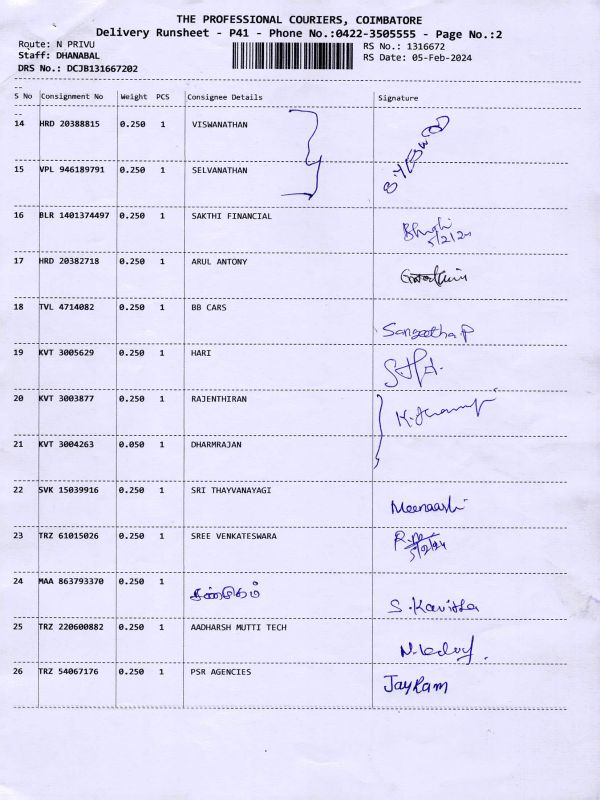 THE PROFESSIONAL COURIERS, COIMBATORE
Delivery Runsheet - P41 - Phone No.:0422-3505555 - Page No.:2
Route: N PRIVU
RS No.: 1316672
Staff: DHANABAL
RS Date: 05-Feb-2024
DRS No.: DCJB131667202
S No Consignment No Weight PCS Consignee Details Signature
14 HRD 20388815 0.250 1 VISWANATHAN
15 VPL 946189791 0.250 1 SELVANATHAN
16 BLR 1401374497 0.250 1 SAKTHI FINANCIAL
5/2/24
17 HRD 20382718 0.250 1 ARUL ANTONY
18 TVL 4714082 0.250 1 BB CARS
Sangeetha P
19 KVT 3005629 0.250 1 HARI
20 KVT 3003877 0.250 1 RAJENTHIRAN
21 KVT 3004263 0.050 1 DHARMRAJAN
22 SVK 15039916 0.250 1 SRI THAYVANAYAGI
Meenaashi
23 TRZ 61015026 0.250 1 SREE VENKATESWARA
5/2/24
24 MAA 863793370 0.250 1
S. Kavitha
25 TRZ 220600882 0.250 1 AADHARSH MUTTI TECH
26 TRZ 54067176 0.250 1 PSR AGENCIES
JayRam